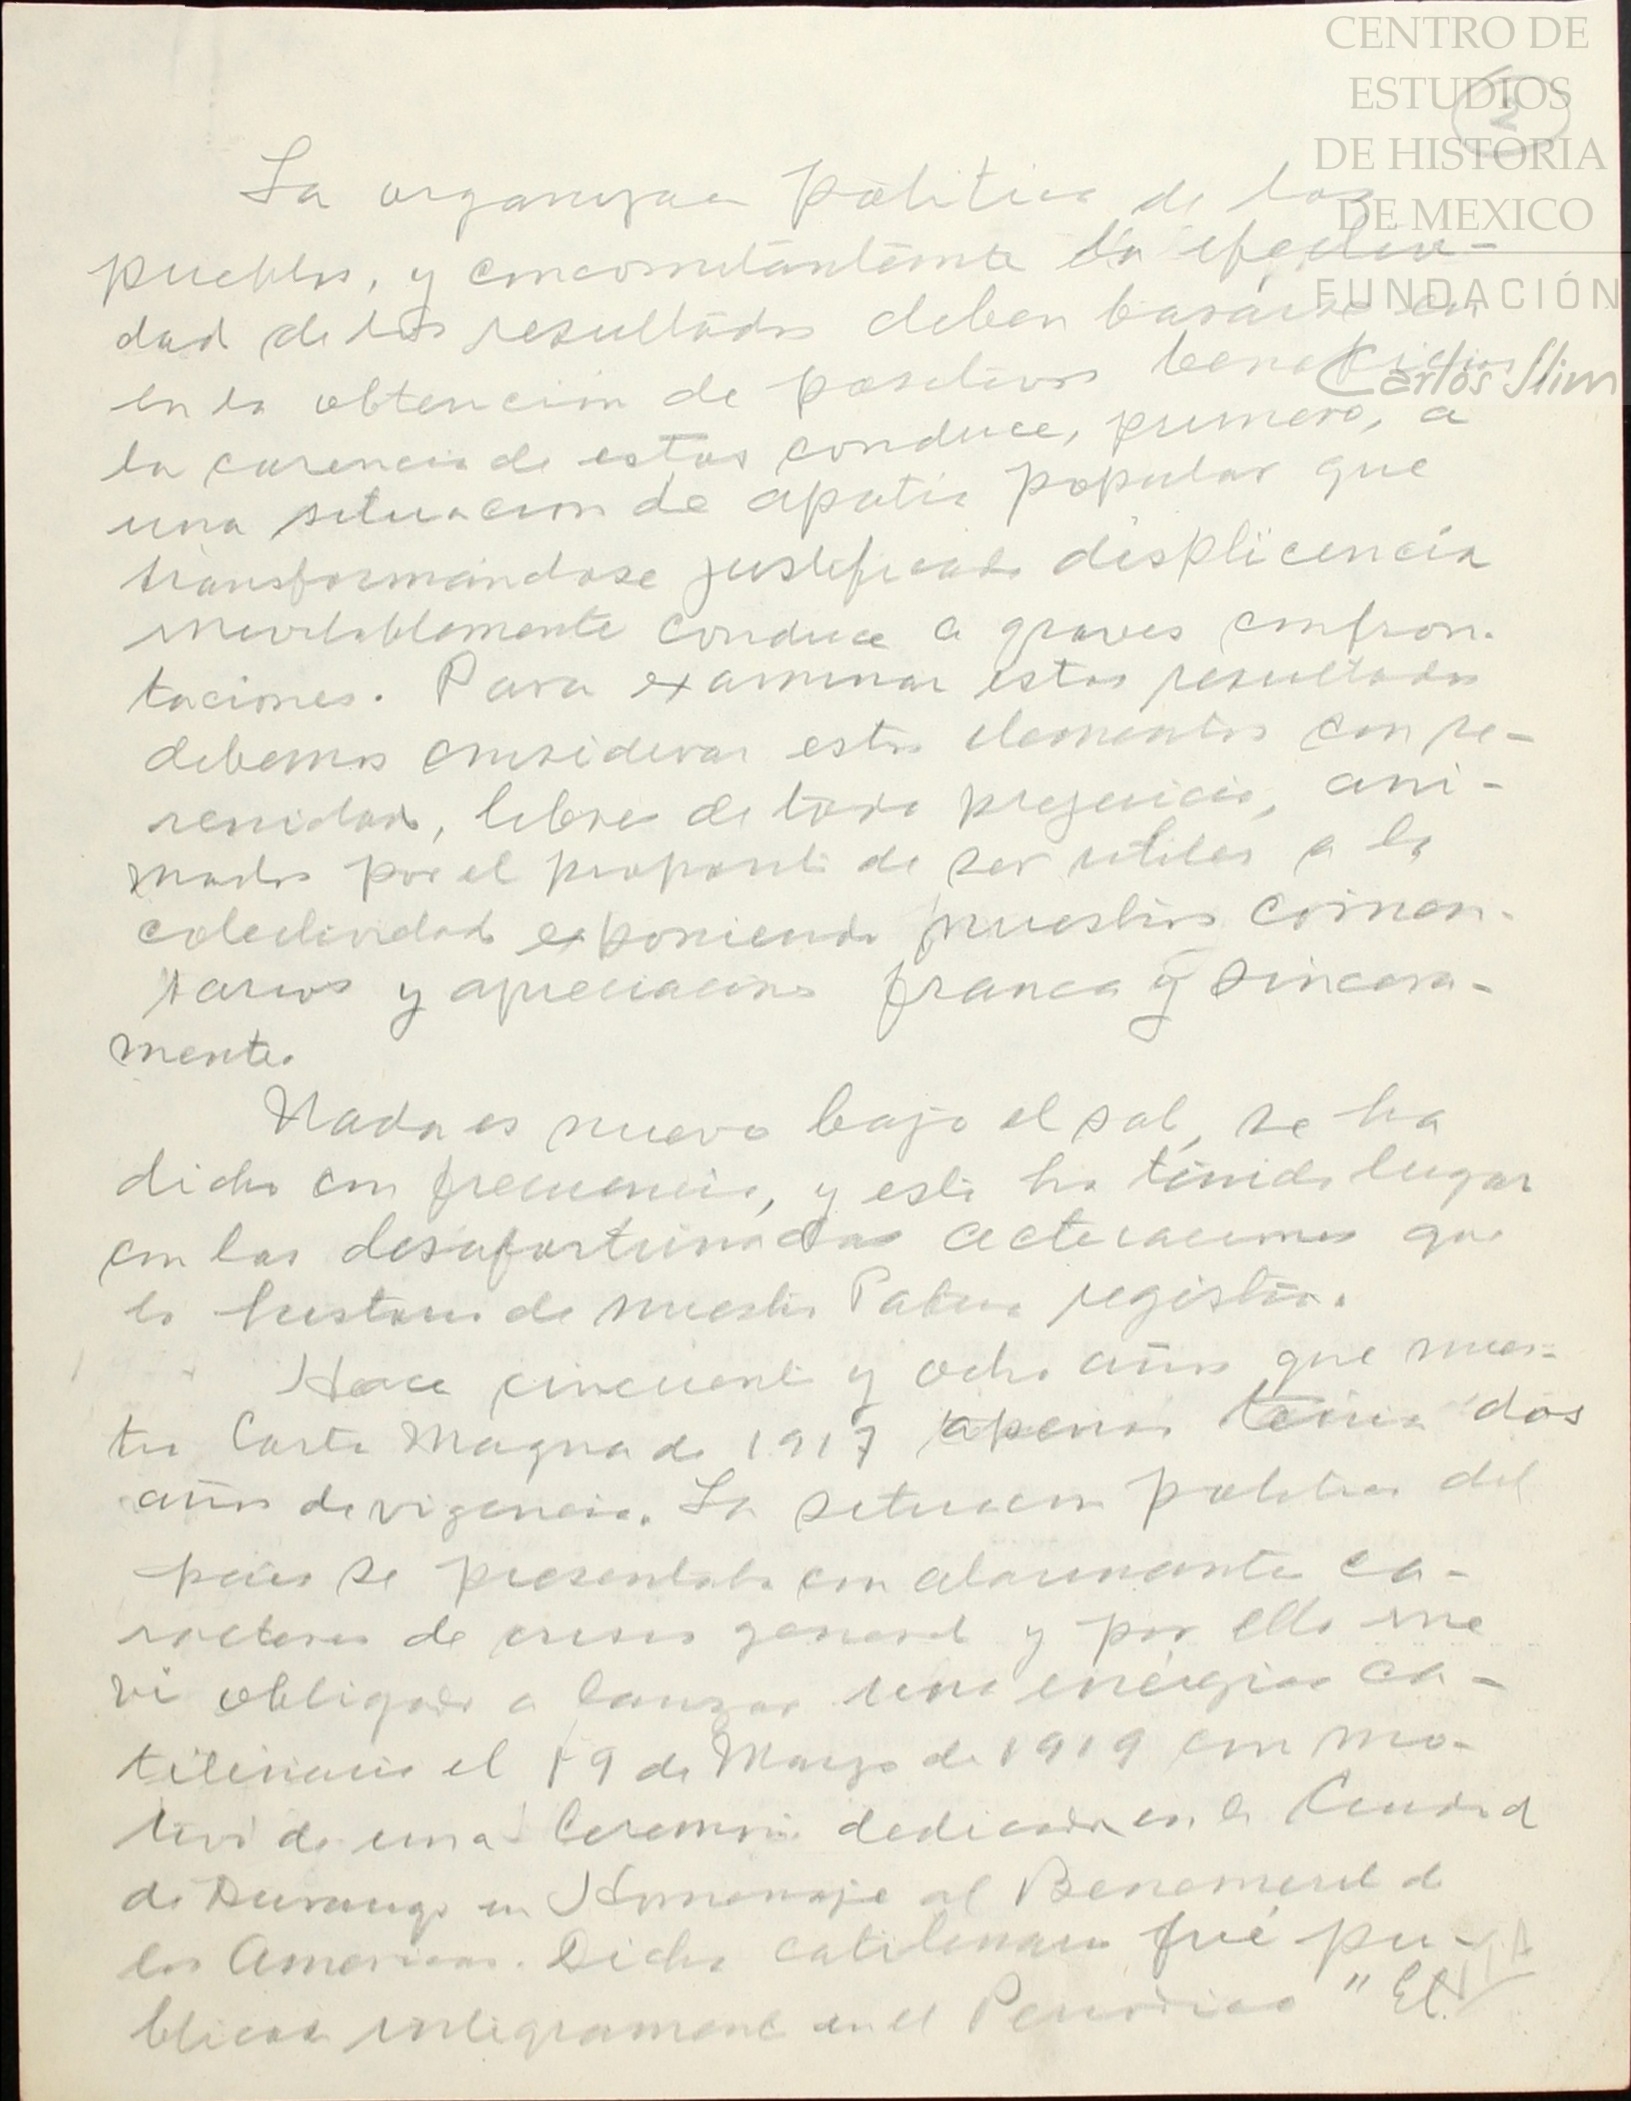 CENTRO DE
ESTUDIOS
DE HISTORIA
DE MEXICO
FUNDACIÓN
Carlos Slim
2
La politica de los
pueblos, y concomitantemente la efectivi-
dad de los resultados deben basarse en
en la obtencion de positivos beneficios
la carencia de estos conduce, primero, a
una situacion de apatia popular que
transformándose justificada displicencia
inevitablemente conduce a graves confron-
taciones. Para examinar estos resultados
debemos considerar estos elementos con se-
renidad, libres de todo prejuicio, ani-
mados por el proposito de ser utiles a la
colectividad exponiendo nuestros comen-
tarios y apreciaciones franca y sincera-
mente.
Nada es nuevo bajo el sol, se ha
dicho con frecuencia, y esto ha tenido lugar
con las desafortunadas que
la historia de nuestra Patria registra.
Hace cincuenta y ocho años que nues-
tra Carta Magna de 1917 apenas tenia dos
años de vigencia. La situacion politica del
pais se presentaba con alarmante ca-
racteres de crisis general y por ello me
vi obligado a lanzar una energica ca-
tilinaria el 19 de Marzo de 1919 con mo-
tivo de una Ceremonia dedicada en la Ciudad
de Durango en Homenaje al Benemerito de
las Americas. Dicha catilinaria fué pu-
blicada integramente en el Periodico "El